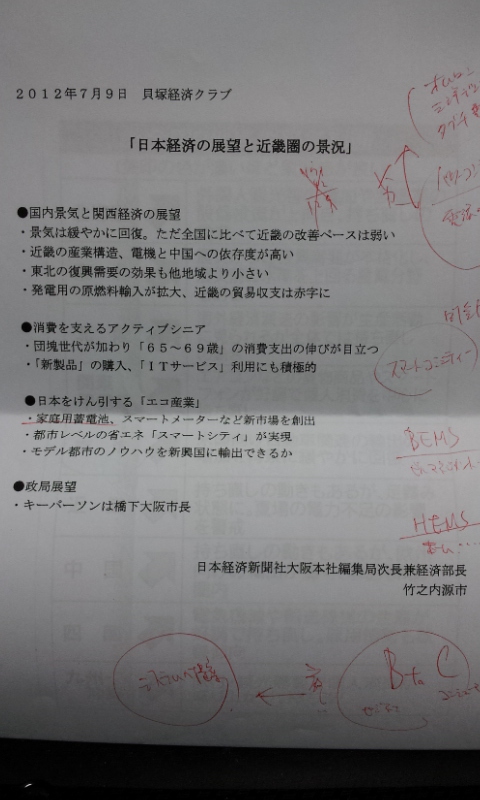 ２０１２年７月９日　貝塚経済クラブ
「日本経済の展望と近畿圏の景況」
●国内景気と関西経済の展望
・景気は緩やかに回復。ただ全国に比べて近畿の改善ペースは弱い
・近畿の産業構造、電機と中国への依存度が高い
・東北の復興需要の効果も他地域より小さい
・発電用の原燃料輸入が拡大、近畿の貿易収支は赤字に
●消費を支えるアクティブシニア
・団塊世代が加わり「６５～６９歳」の消費支出の伸びが目立つ
・「新製品」の購入、「ＩＴサービス」利用にも積極的
スマートコミニティー
●日本をけん引する「エコ産業」
・家庭用蓄電池、スマートメーターなど新市場を創出
・都市レベルの省エネ「スマートシティ」が実現
BEMS
・モデル都市のノウハウを新興国に輸出できるか
●政局展望
・キーパーソンは橋下大阪市長
HEMS
ホーム
日本経済新聞社大阪本社編集局次長兼経済部長
竹之内源市
B to C